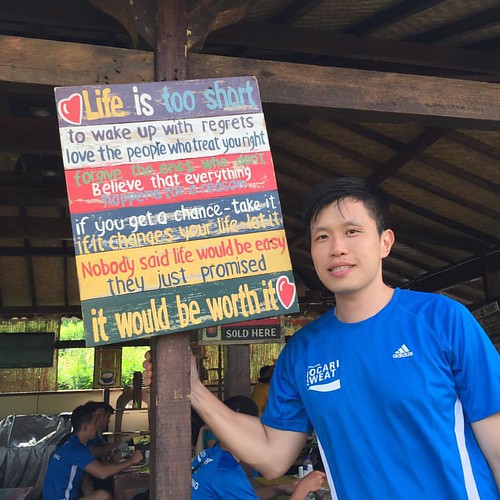 Life is too short
to wake up with regrets
love the people who treat you right
forgive the ones who don't
Believe that everything
happens for a reason
if you get a chance - take it
if it changes your life let it
Nobody said life would be easy
they just promised
it would be worth it
SOLD HERE
adidas
OCARI
SWEAT